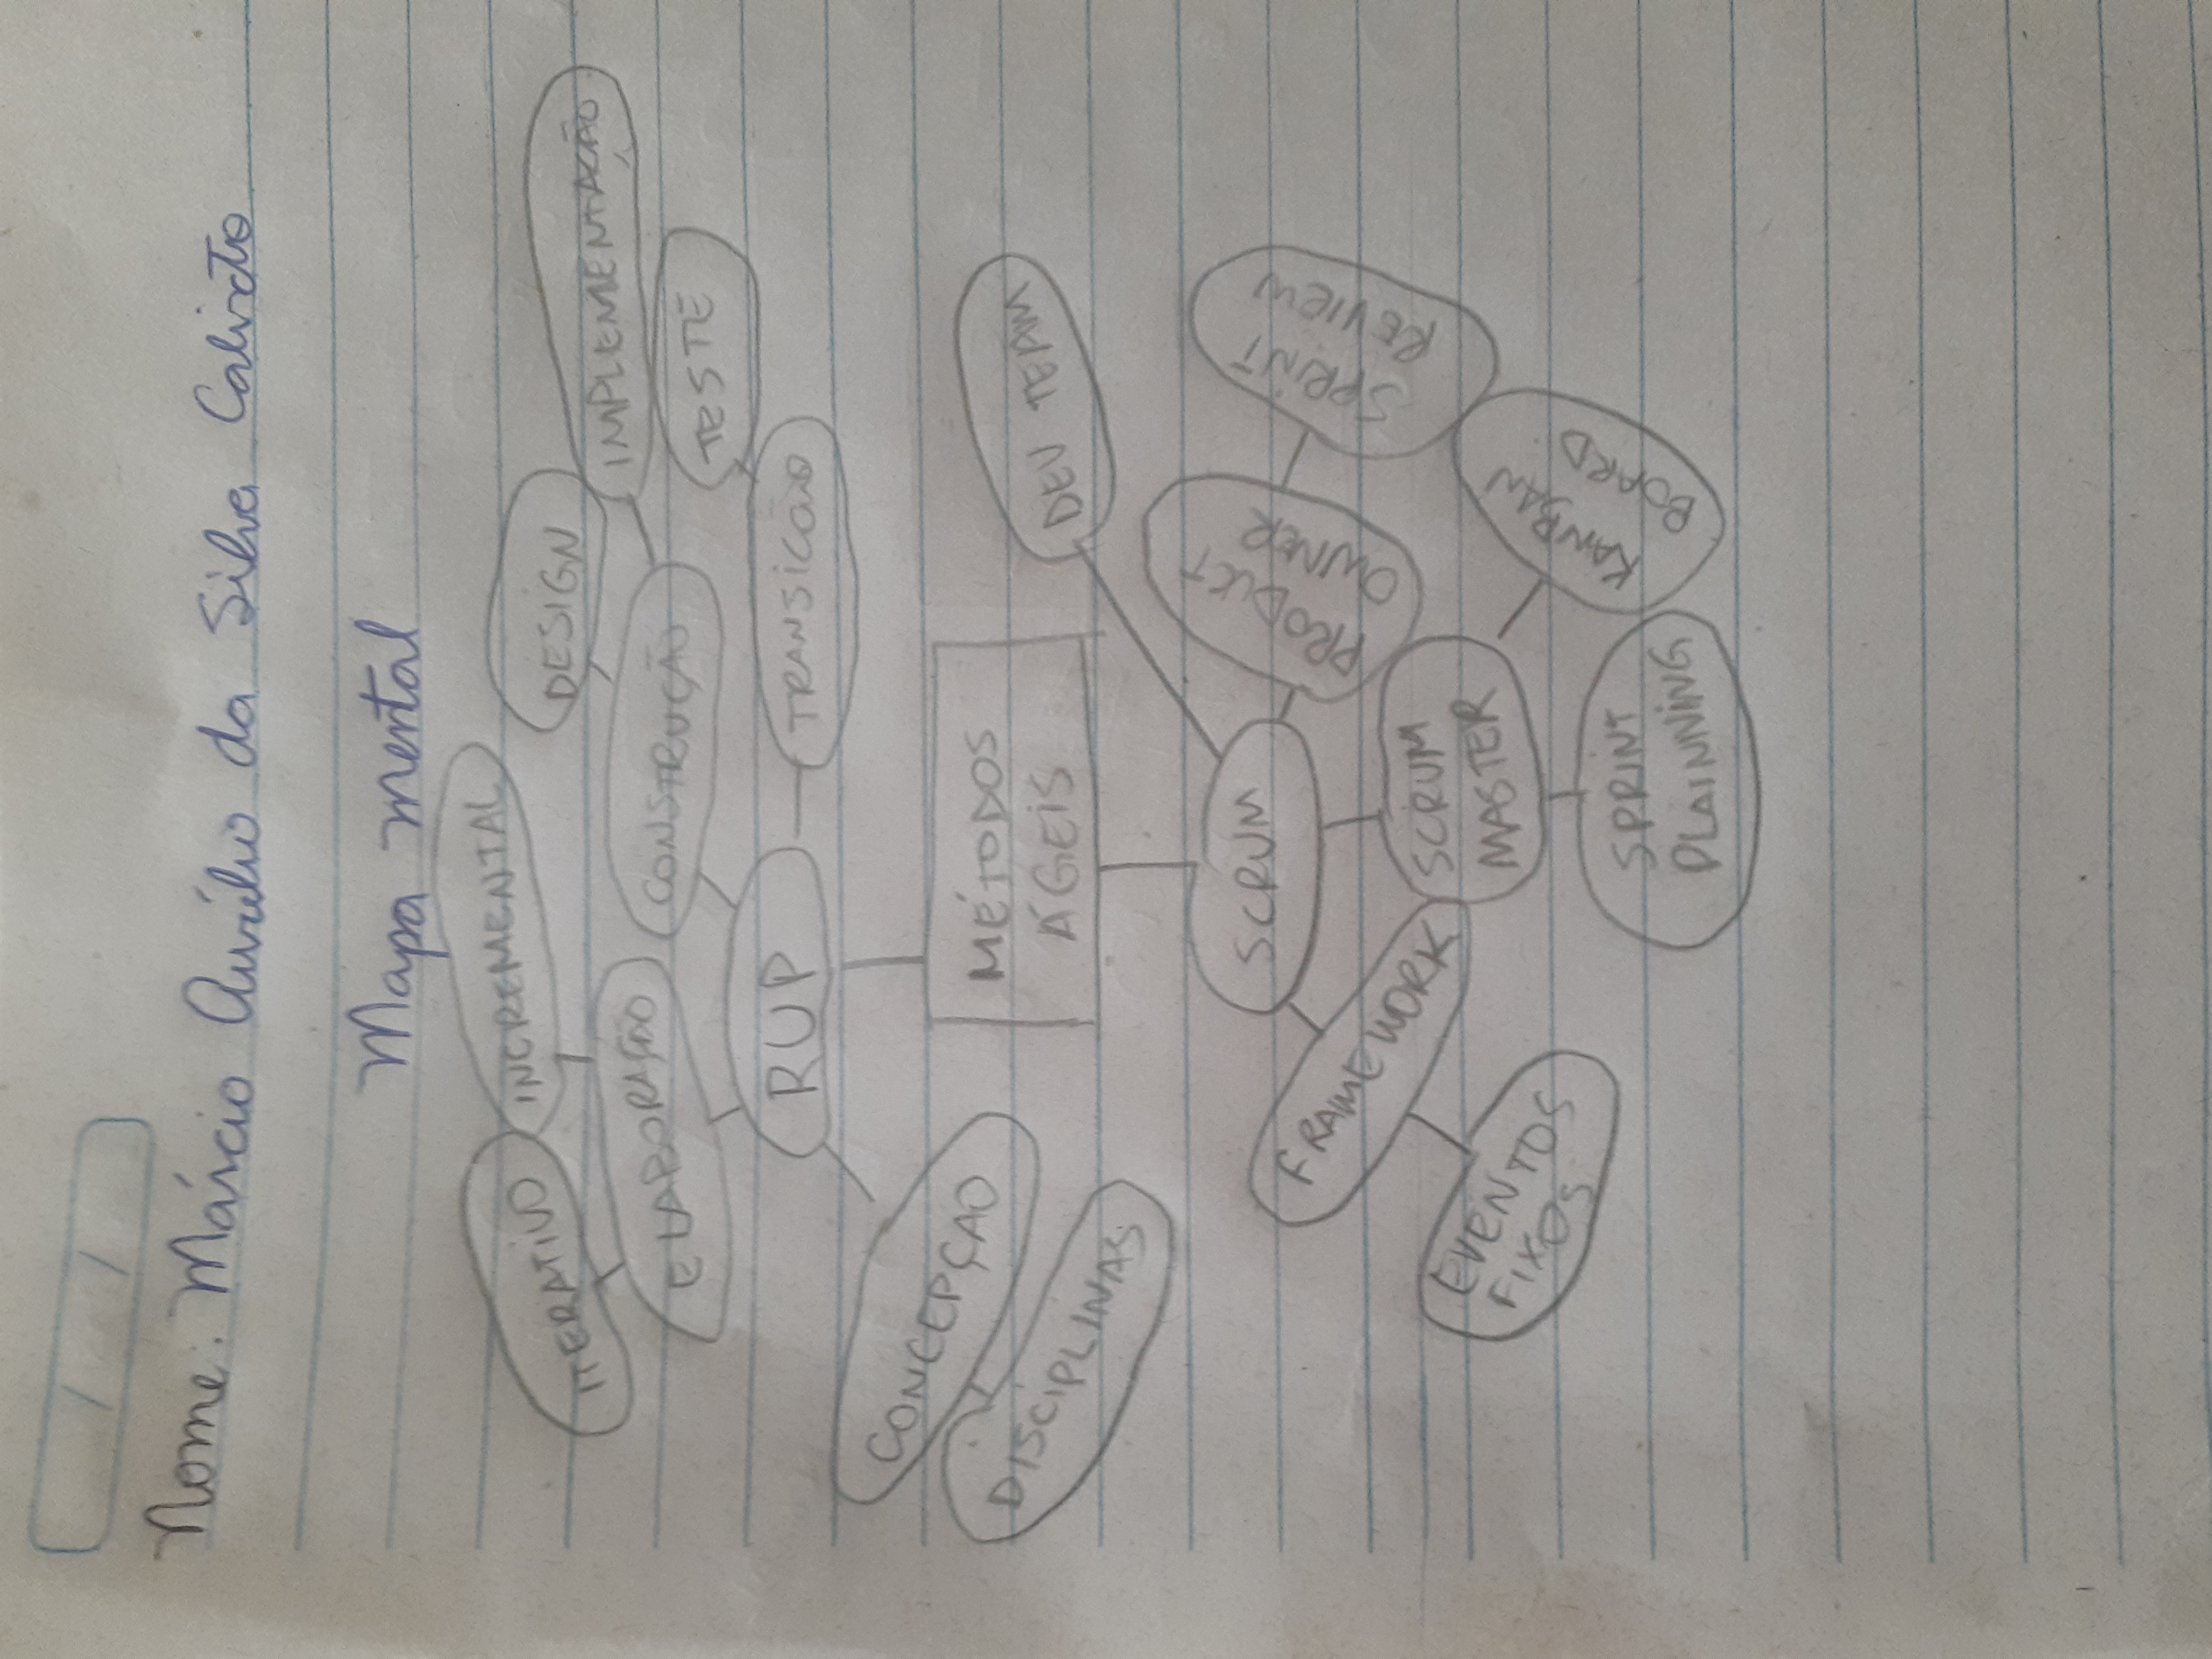 Nome: Márcio Aurélio da Silva Calixto
Mapa mental
ITERATIVO
INCREMENTAL
DESIGN
IMPLEMENTAÇÃO
ELABORAÇÃO
CONSTRUÇÃO
TESTE
RUP
TRANSICÃO
CONCEPÇAO
DISCIPLINAS
MÉTODOS
ÁGEIS
DEV TEAM
SCRUM
PRODUCT
OWNER
SPRINT
REVIEW
FRAMEWORK
SCRUM
MASTER
EVENTOS
FIXOS
KANBAN
BOARD
SPRINT
PLAINNING